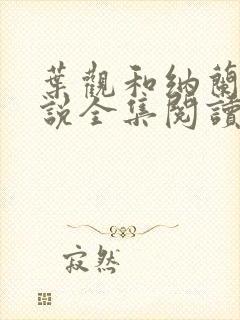 葉觀和納蘭
說全集閱讀
寂然